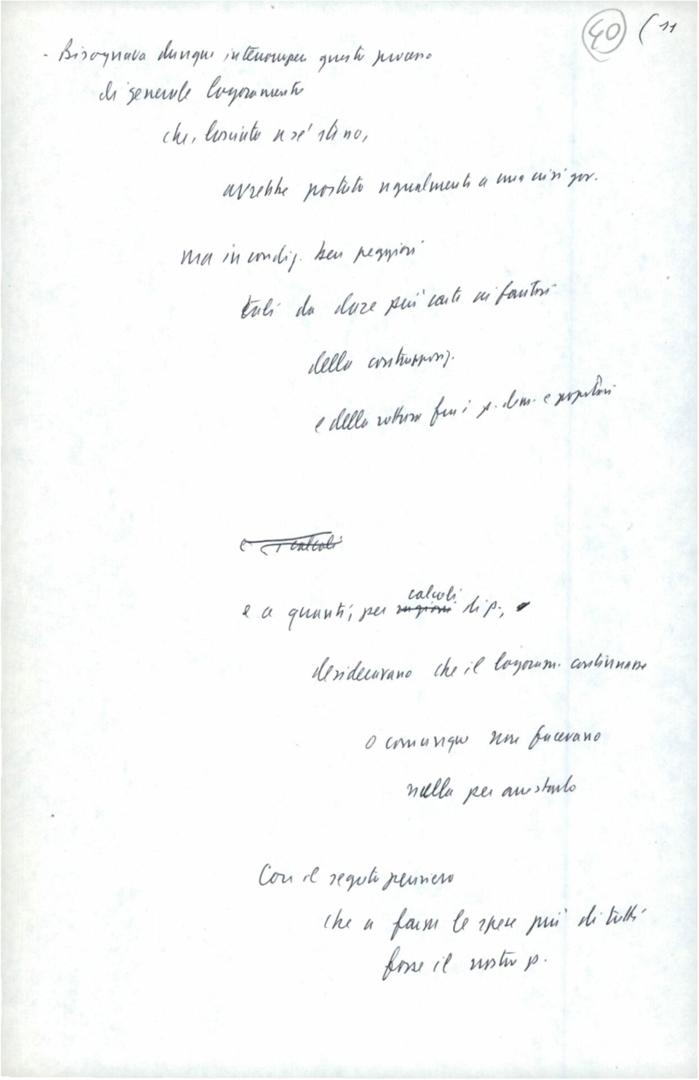 40 ( 11
- Bisognava dunque interrompere questo processo
di generale logoramento
che, lasciato a se' stesso,
avrebbe portato ugualmente a una crisi gov.
ma in condiz. ben peggiori
tali da dare più carte ai fautori
della contrapposiz.
e della rottura fra i p. dem. e popolari
e i calcoli
e a quanti, per ragioni calcoli di p.,
desideravano che il logoram. continuasse
o comunque non facevano
nulla per arrestarlo
Con il segreto pensiero
che a farne le spese più di tutti
fosse il nostro p.